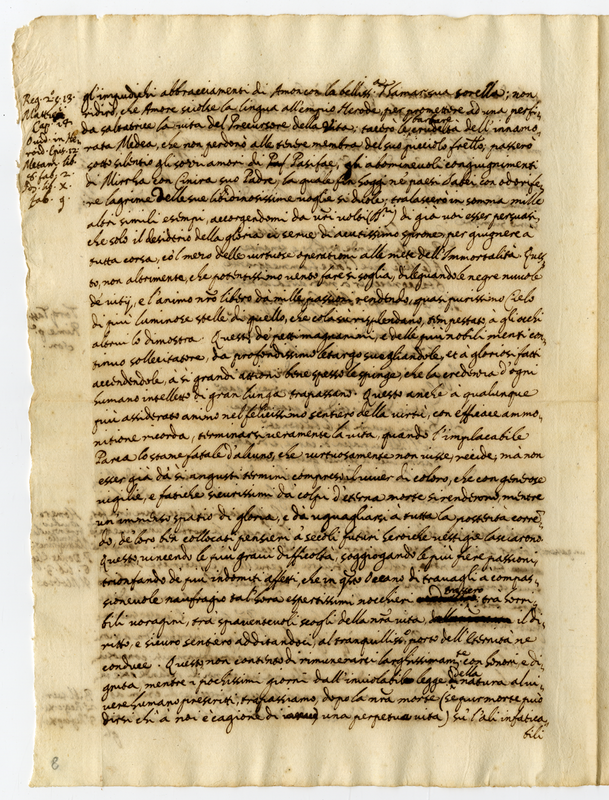 Reg. 2. c. 13.
Matth.
Cap. 14.
Ouid. in He-
roid. Epist. 12.
Metam. lib.
fab. 2.
lib. X.
fab. 9
gl'impudichi abbracciamenti di Amon con la bellissᵃ Thamar sua sorella; non
ridirò, che Amore sciolse la lingua all'empio Herode, per promettere ad una perfi-
da saltatrice la vita del Precursore della Vita; tacerò la crudeltà dell'innamo-
rata Medea, che non perdonò alle tenere membra del suo picciolo frello; passerò
sotto silentio gli sozzi amori di Pasifae, gli abominevoli congiugnimenti
di Mirrha con Cinira suo Padre, la quale fin oggi ne paesi Sabei con odorife-
re lagrime delle sue libidinosissime voglie si duole; tralascierò in somma mille
altri simili esempi, accorgendomi da vri volti di già voi esser persuasi,
che solo il desiderio della gloria ci serve di acutissimo sprone, per giugnere à
tutta corsa, col mezo delle virtuose operationi alle mete dell'Immortalità. Ques-
to, non altrimente, che potentissimo vento fare si soglia, dileguando le negre nuvole
de' vitij, e l'animo nro libero da mille passioni rendendo, quasi purissimo Cielo
di più luminose stelle di quello, che colà su risplendano, tempestato à gli occhi
altrui lo dimostra. Questo de' petti magnanimi, e delle più nobili menti con-
tinuo sollecitatore, da profondissimo letargo svegliandole, et à gloriosi fatti
accendendole, à sì grandi attioni bene spesso le spinge, che la credenza d'ogni
humano intelletto di gran lunga trapassano. Questo anche à qualunque
più assiderato animo nel felicissimo sentiero della virtù, con efficace ammo-
nitione ricorda, terminarsi veramente la vita, quando l'implacabile
Parca lo stame fatale d'alcuno, che virtuosamente non visse, recide; mà non
esser già dà sì angusti termini compreso il viver di coloro, che con generose
vigilie, e fatiche sicurissimi da colpi d'eterna morte si renderono, mentre
un immenso spatio di gloria, e da uguagliarsi à tutta la posterità corren-
do, de' loro ben collocati pensieri à secoli futuri heroiche vestigie lasciarono.
Questo, vincendo le più gravi difficoltà, soggiogando le più fiere passioni,
trionfando de' più indomiti affetti, che in qsto Oceano di travagli à compas-
sionevole naufragio tal'hora espertissimi nocchieri trà orri-
bili voragini, trà spaventevoli scogli della nra vita, il di-
ritto, e sicuro sentiero additandoci, al tranquillissᵒ porto dell'Eternità ne
conduce. Questo non contento di rimunerarci larghissimamᵗᵉ con honori, e di-
gnità, mentre i pochissimi giorni dall'inviolabile legge della natura al vi-
vere humano prescritti, trapassiamo, dopo la nra morte (se pur morte può
dirsi ch'à noi è cagione di una perpetua vita) sù l'ali infatica-
bili
8